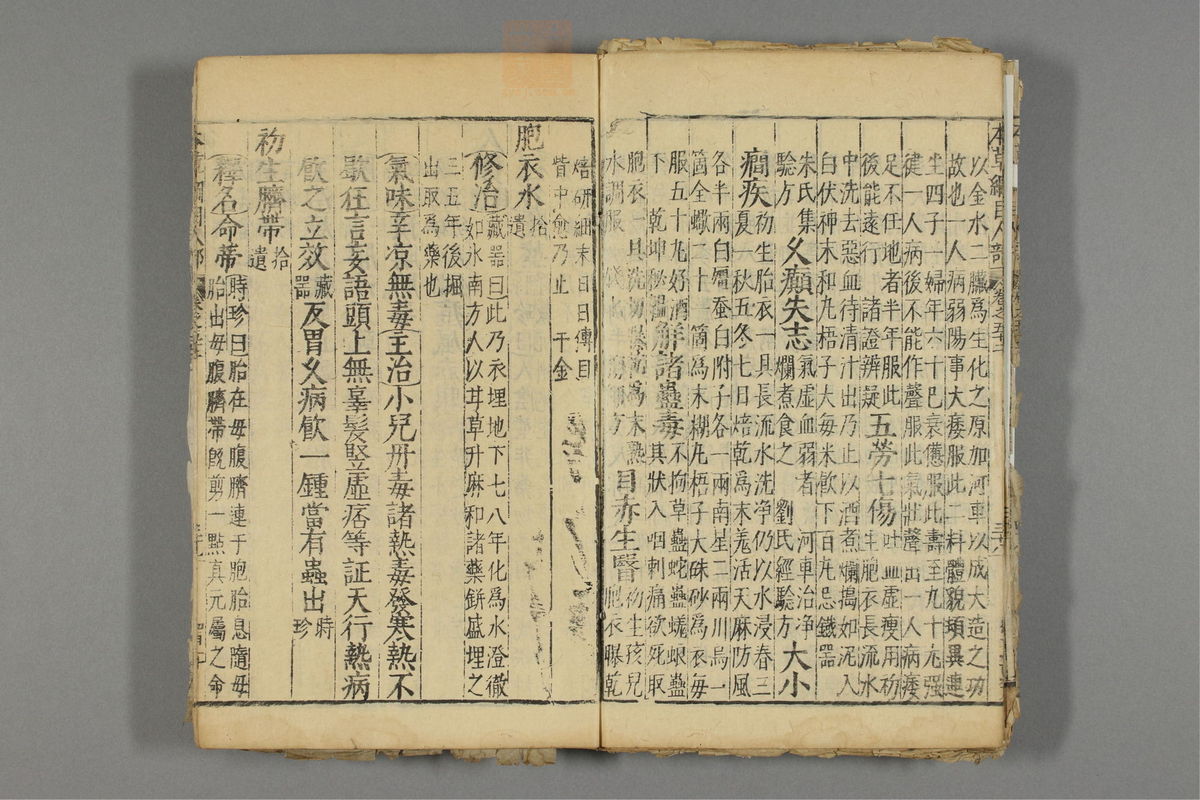 本草綱目人部
以金水二臟爲生化之原加河車以成大造之功
故也一人病弱陽事大痿服此二料體貌頓異連
生四子一婦年六十已衰憊服此壽至九十尤强
健一人病後不能作聲服此氣壯聲出一人病痿
足不任地者半年服此後能遠行 諸證辨疑 五勞七傷 吐血虛瘦用初生胞衣長流水
中洗去惡血待清汁出乃止以酒煮爛搗如泥入
白伏神末和九梧子大每米飲下百九忌鐵器
朱氏集驗方 久癲失志 氣虛血弱者河車治净爛煮食之 劉氏經驗方 大小
癇疾 初生胎衣一具長流水洗净仍以水浸春三
夏一秋五冬七日焙乾爲末羌活天麻防風
各半兩白殭蚕白附子各一兩南星二兩川烏一
箇全蠍二十一箇爲末糊九梧子大硃砂爲衣每
服五十九好酒下 乾坤秘韞 解諸蠱毒 不拘草蠱蛇蠱蜣蜋蠱其狀入咽刺痛欲死取
胞衣一具洗切曝乾爲末熟水調服一錢 目赤生翳 初生孩兒胞衣曝乾
焙研細末日日傅目
眥中愈乃止 千金
胞衣水 拾遺
修治 藏器曰此乃衣埋地下七八年化爲水澄徹
如冰南方人以甘草升麻和諸藥缾盛埋之
三五年後掘
出取爲藥也
氣味辛凉無毒主治小兒丹毒諸熱毒發寒熱不
歇狂言妄語頭上無辜髮竪虛痞等証天行熱病
飲之立效 藏器 反胃久病飲一鍾當有蟲出 時珍
初生臍帶 拾遺
釋名命蒂 時珍曰胎在母腹臍連于胞胎息隨母
胎出母腹臍帶既剪一點真元屬之命
本草綱目人部